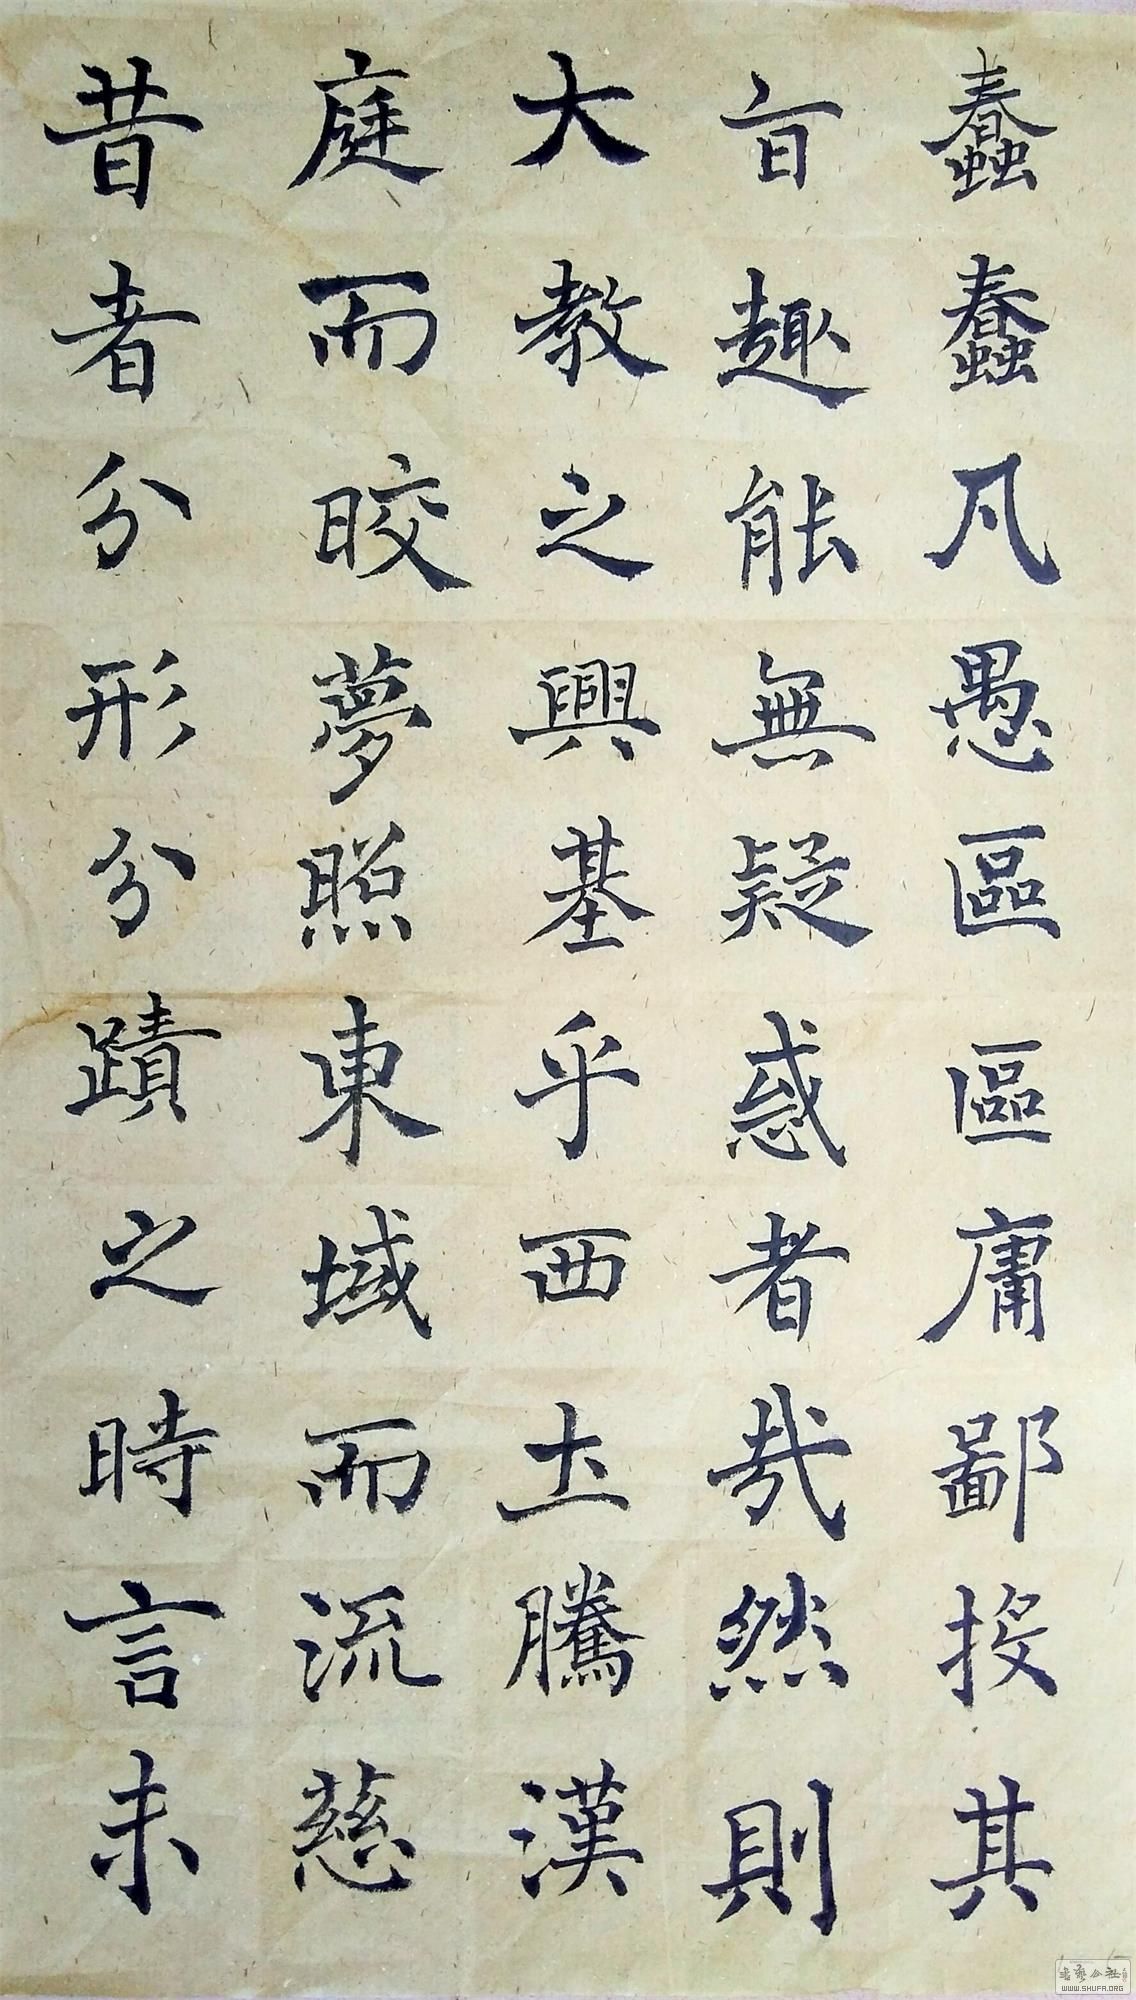 蠢蠢凡愚區區庸鄙投其
盲趣能無疑惑者哉然則
大教之興基乎西土騰漢
庭而皎夢照東域而流慈
昔者分形分蹟之時言未
WWW.SHUFA.ORG